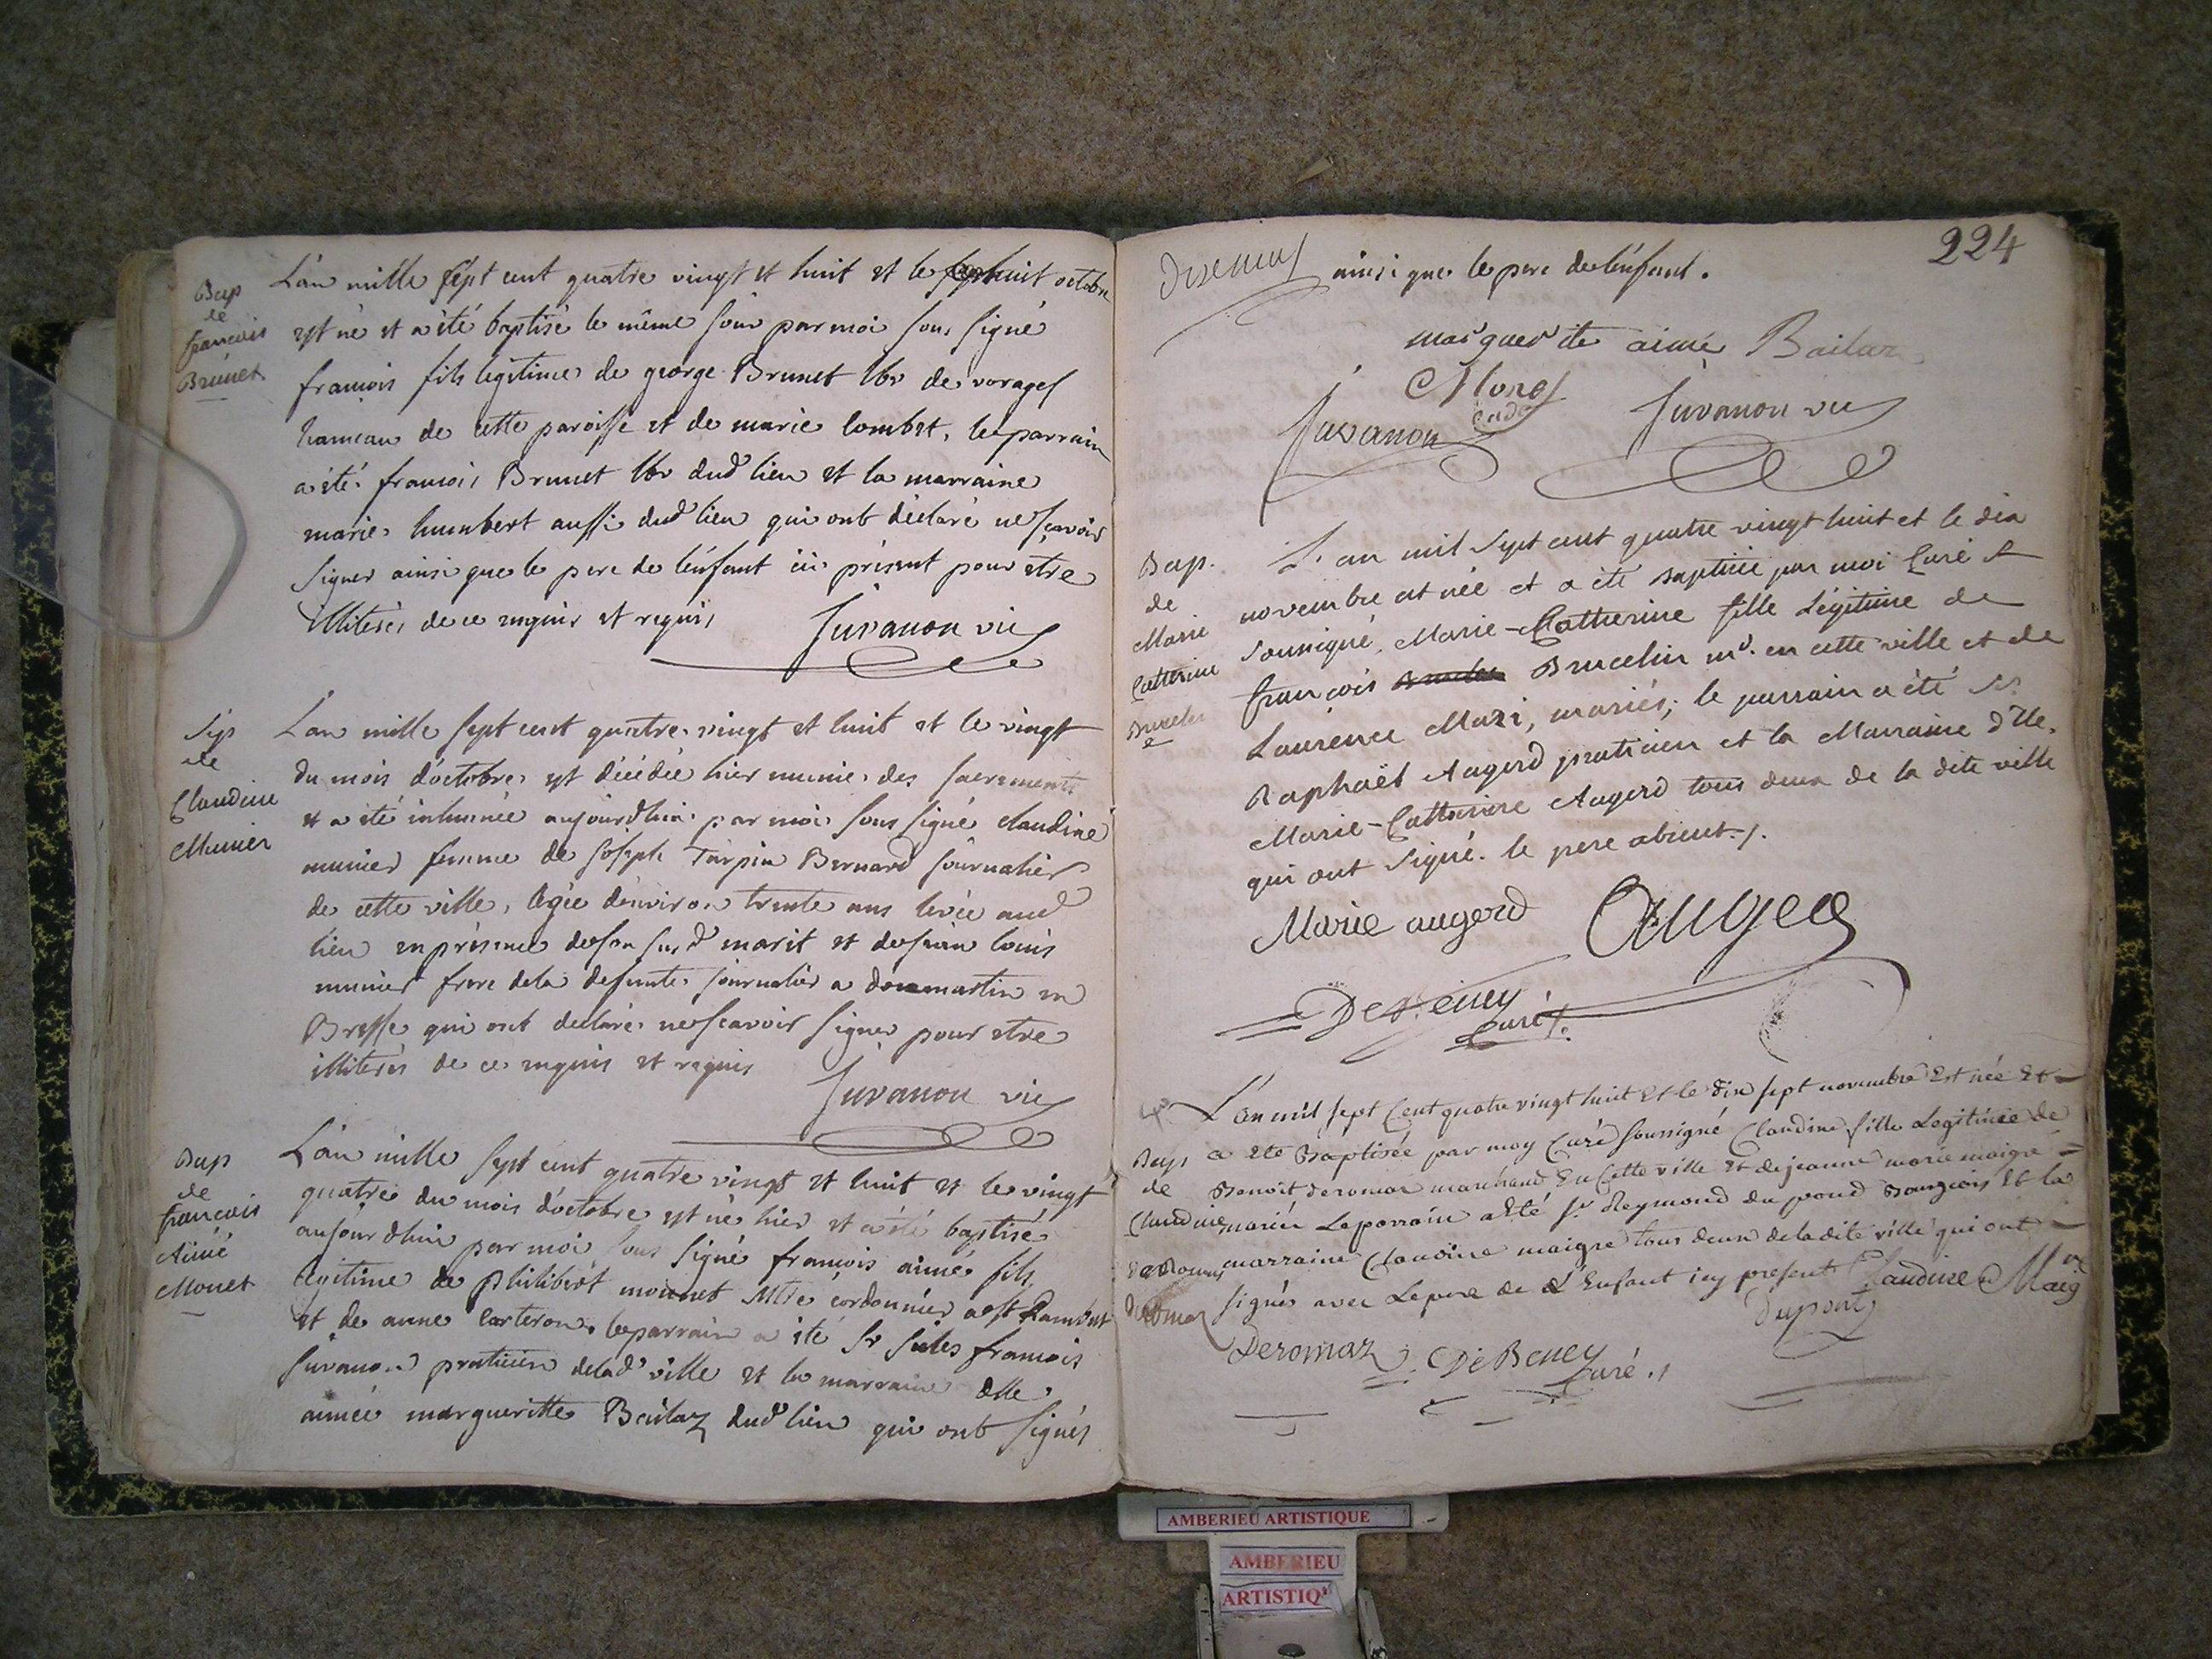 Bap
de
francois
Brunet
L'an mille sept cent quatre vingt et huit et le huit octobre
est né et a été baptisé le même jour par moi sous signé
francois fils legitime de george Brunet lbr de vorages
hameau de cette paroisse et de marie lombet, le parrain
a été francois Brunet lbr dud lieu et la marraine
marie humbert aussi dud lieu qui ont déclaré ne scavoir
signer ainsi que le pere de l'enfant ici présent pour etre
illiterés de ce enquis et requis
Juvanon vic
Sep
de
Claudine
Munier
L'an mille sept cent quatre vingt et huit et le vingt
du mois d'octobre est décédée hier munie des sacrements
et a été inhumée aujourdhui par moi sous signé claudine
munier femme de Joseph Tarpin Bernard journalier
de cette ville, agée d'environ trente ans levée aud
lieu en présence de son sud marit et de louis
munier frere de la defunte journalier a dommartin en
Bresse qui ont declaré ne scavoir signer pour etre
illiterés de ce enquis et requis
Juvanon vic
Bap
de
francois
Aimé
Monet
L'an mille sept cent quatre vingt et huit et le vingt
quatre du mois d'octobre est né hier et a été baptisé
aujourdhui par moi sous signé francois aimé fils
legitime de philibert monnet Mtre cordonnier a st Rambert
et de anne carteron, le parrain a été sr Jules francois
Juvanon praticien de lad ville et la marraine dlle
aimée margueritte Bailaz dud lieu qui ont signés
224
ainsi que le pere de l'enfant.
marguerite aimé Bailaz
Monet
Juvanon
Juvanon vic
Bap.
de
Marie
Catterine
Brucelin
L'an mil sept cent quatre vingt huit et le dix
novembre est née et a été baptisée par moi Curé
soussigné, Marie-Catherine fille Légitime de
françois Brucelin md. en cette ville et de
Laurence Mazi, mariés; le parrain a été Sr.
Raphaël Augerd praticien et la Marraine Dlle.
Marie-Catterine Augerd tous deux de la dite ville
qui ont signé. le pere absent./.
Marie augerd
Auger
De Beney
Curé /.
Bap
de
Claudine
Deromaz
L'an mil sept Cent quatre vingt huit Et le dix sept novembre Est née Et
a Eté Baptisée par moy Curé soussigné Claudine fille Legitimée de
Benoit deromaz marchand En Cette ville Et de jeanne marie maigre
mariés Le parrain a Eté sr Reymond du pond Bourgeois Et la
marraine Claudine maigre tous deux de la dite ville qui ont
signés avec Le pere de L'Enfant icy present
Claudine Maig
Dupont
Deromaz
De Beney
Curé ./
AMBERIEU ARTISTIQUE
AMBERIEU
ARTISTIQ